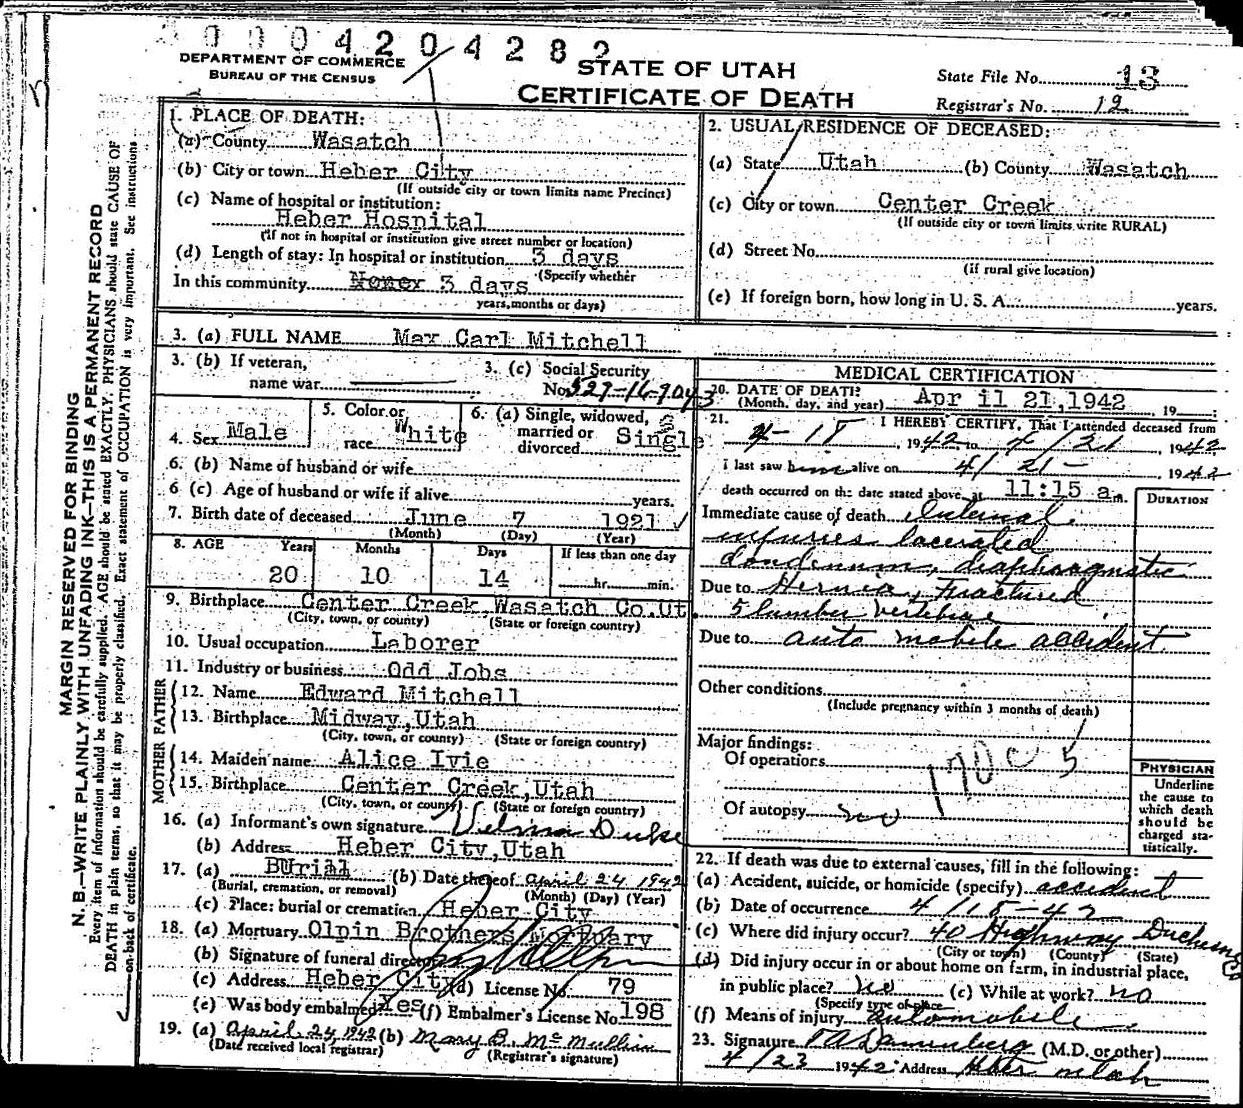 0 0 0 4 2 0 4 2 8 2
DEPARTMENT OF COMMERCE
BUREAU OF THE CENSUS
STATE OF UTAH
CERTIFICATE OF DEATH
State File No. 13
Registrar's No. 12
MARGIN RESERVED FOR BINDING
N. B.—WRITE PLAINLY WITH UNFADING INK—THIS IS A PERMANENT RECORD
Every item of information should be carefully supplied. AGE should be stated EXACTLY. PHYSICIANS should state CAUSE OF
DEATH in plain terms, so that it may be properly classified. Exact statement of OCCUPATION is very important. See instructions
on back of certificate.
1. PLACE OF DEATH:
(a) County Wasatch
(b) City or town Heber City
(If outside city or town limits name Precinct)
(c) Name of hospital or institution:
Heber Hospital
(If not in hospital or institution give street number or location)
(d) Length of stay: In hospital or institution 3 days
(Specify whether
In this community 3 days
years, months or days)
2. USUAL RESIDENCE OF DECEASED:
(a) State Utah (b) County Wasatch
(c) City or town Center Creek
(If outside city or town limits write RURAL)
(d) Street No.
(if rural give location)
(e) If foreign born, how long in U. S. A. years.
3. (a) FULL NAME Max Carl Mitchell
3. (b) If veteran,
name war
3. (c) Social Security
No. 529-16-9043
4. Sex Male
5. Color or
race White
6. (a) Single, widowed,
married or
divorced Single
6. (b) Name of husband or wife
6 (c) Age of husband or wife if alive years.
7. Birth date of deceased June 7 1921
(Month) (Day) (Year)
8. AGE Years Months Days If less than one day
20 10 14 hr. min.
9. Birthplace Center Creek Wasatch Co. Ut.
(City, town, or county) (State or foreign country)
10. Usual occupation Laborer
11. Industry or business Odd Jobs
FATHER
12. Name Edward Mitchell
13. Birthplace Midway, Utah
(City, town, or county) (State or foreign country)
MOTHER
14. Maiden name Alice Ivie
15. Birthplace Center Creek, Utah
(City, town, or county) (State or foreign country)
16. (a) Informant's own signature Velma Duke
(b) Address Heber City, Utah
17. (a) BUrial (b) Date thereof April 24 1942
(Burial, cremation, or removal) (Month) (Day) (Year)
(c) Place: burial or cremation Heber City
18. (a) Mortuary Olpin Brothers Mortuary
(b) Signature of funeral director
(c) Address Heber City (d) License No. 79
(e) Was body embalmed Yes (f) Embalmer's License No. 198
19. (a) April 24, 1942 (b) Mary B. McMullin
(Date received local registrar) (Registrar's signature)
MEDICAL CERTIFICATION
20. DATE OF DEATH:
(Month, day, and year) April 21, 1942, 19
21. I HEREBY CERTIFY, That I attended deceased from
4-18, 1942 to 4/21, 1942
I last saw him alive on 4/21- 1942
death occurred on the date stated above, at 11:15 a.m.
DURATION
Immediate cause of death Internal
injuries lacerated
doudenum, diaphragmatic
Due to Hernia, Fractured
5 lumber vertibae
Due to auto mobile accident
Other conditions
(Include pregnancy within 3 months of death)
Major findings:
Of operations
170c 5
Of autopsy no
PHYSICIAN
Underline
the cause to
which death
should be
charged sta-
tistically.
22. If death was due to external causes, fill in the following:
(a) Accident, suicide, or homicide (specify) accident
(b) Date of occurrence 4/18-42
(c) Where did injury occur? 40 Highway Duchesne Co
(City or town) (County) (State)
(d) Did injury occur in or about home on farm, in industrial place,
in public place? (e) While at work? no
(Specify type of place
(f) Means of injury automobile
23. Signature (M.D. or other)
4/23 1942 Address Heber Utah